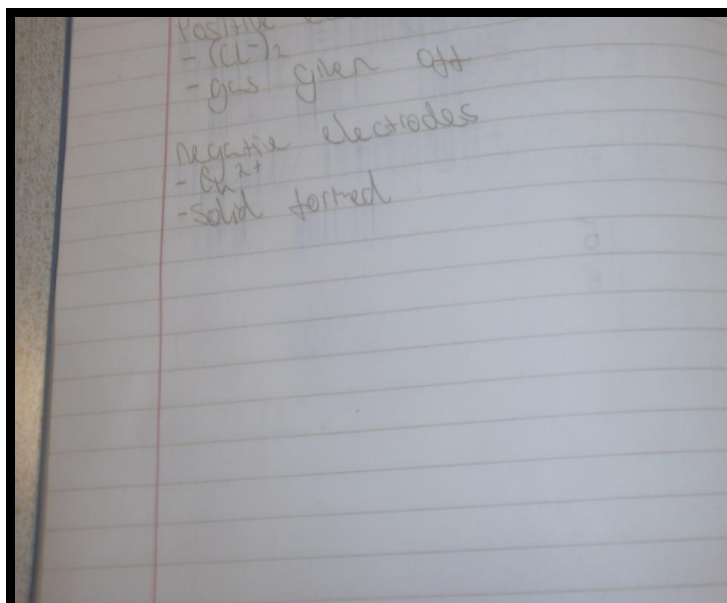 Positive
- (Cl-)2
- gas given off
negative electrodes
- Cu2+
- Solid formed